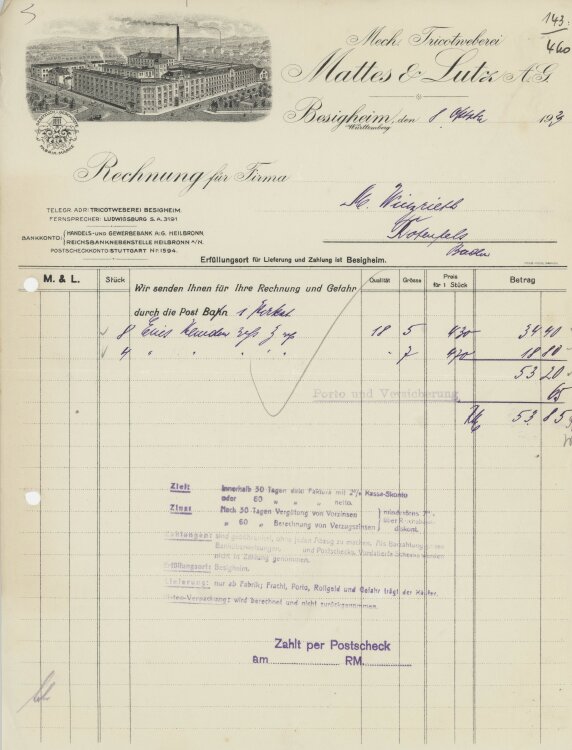 143.
460
Mech. Tricotweberei
Mattes & Lutz A.G.
Besigheim, den 8. 193
Württemberg
Rechnung für Firma
FABRIK-MARKE
TELEGR. ADR: TRICOTWEBEREI BESIGHEIM.
FERNSPRECHER: LUDWIGSBURG S.A. 3191.
BANKKONTO: HANDELS- UND GEWERBEBANK A/G. HEILBRONN,
REICHSBANKNEBENSTELLE HEILBRONN A/N.
POSTSCHECKKONTO: STUTTGART No 1594.
M.
Rotenfels
Baden
Erfüllungsort für Lieferung und Zahlung ist Besigheim.
M. & L. Stück Qualität Grösse Preis für 1 Stück Betrag
Wir senden Ihnen für Ihre Rechnung und Gefahr
durch die Post Bahn 1
8 18 5 430 34 40
4 " " " " " 7 470 18 80
53 20
Porto und Versicherung 65
RM 53 85
Ziel: Innerhalb 30 Tagen dato Faktura mit 2% Kassa-Skonto
oder 60 " " " netto.
Zins: Nach 30 Tagen Vergütung von Vorzinsen
" 60 " Berechnung von Verzugszinsen
mindestens
über Reichsbank-
diskont.
Zahlungen: sind ohne jeden Abzug zu machen. Als Barzahlung
Banküberweisungen, und Postschecks.
nicht in Zahlung genommen.
Erfüllungsort: Besigheim.
Lieferung: nur ab Fabrik; Fracht, Porto, Rollgeld und Gefahr trägt der Käufer.
Kisten-Verpackung: wird berechnet und nicht zurückgenommen.
Zahlt per Postscheck
am RM.